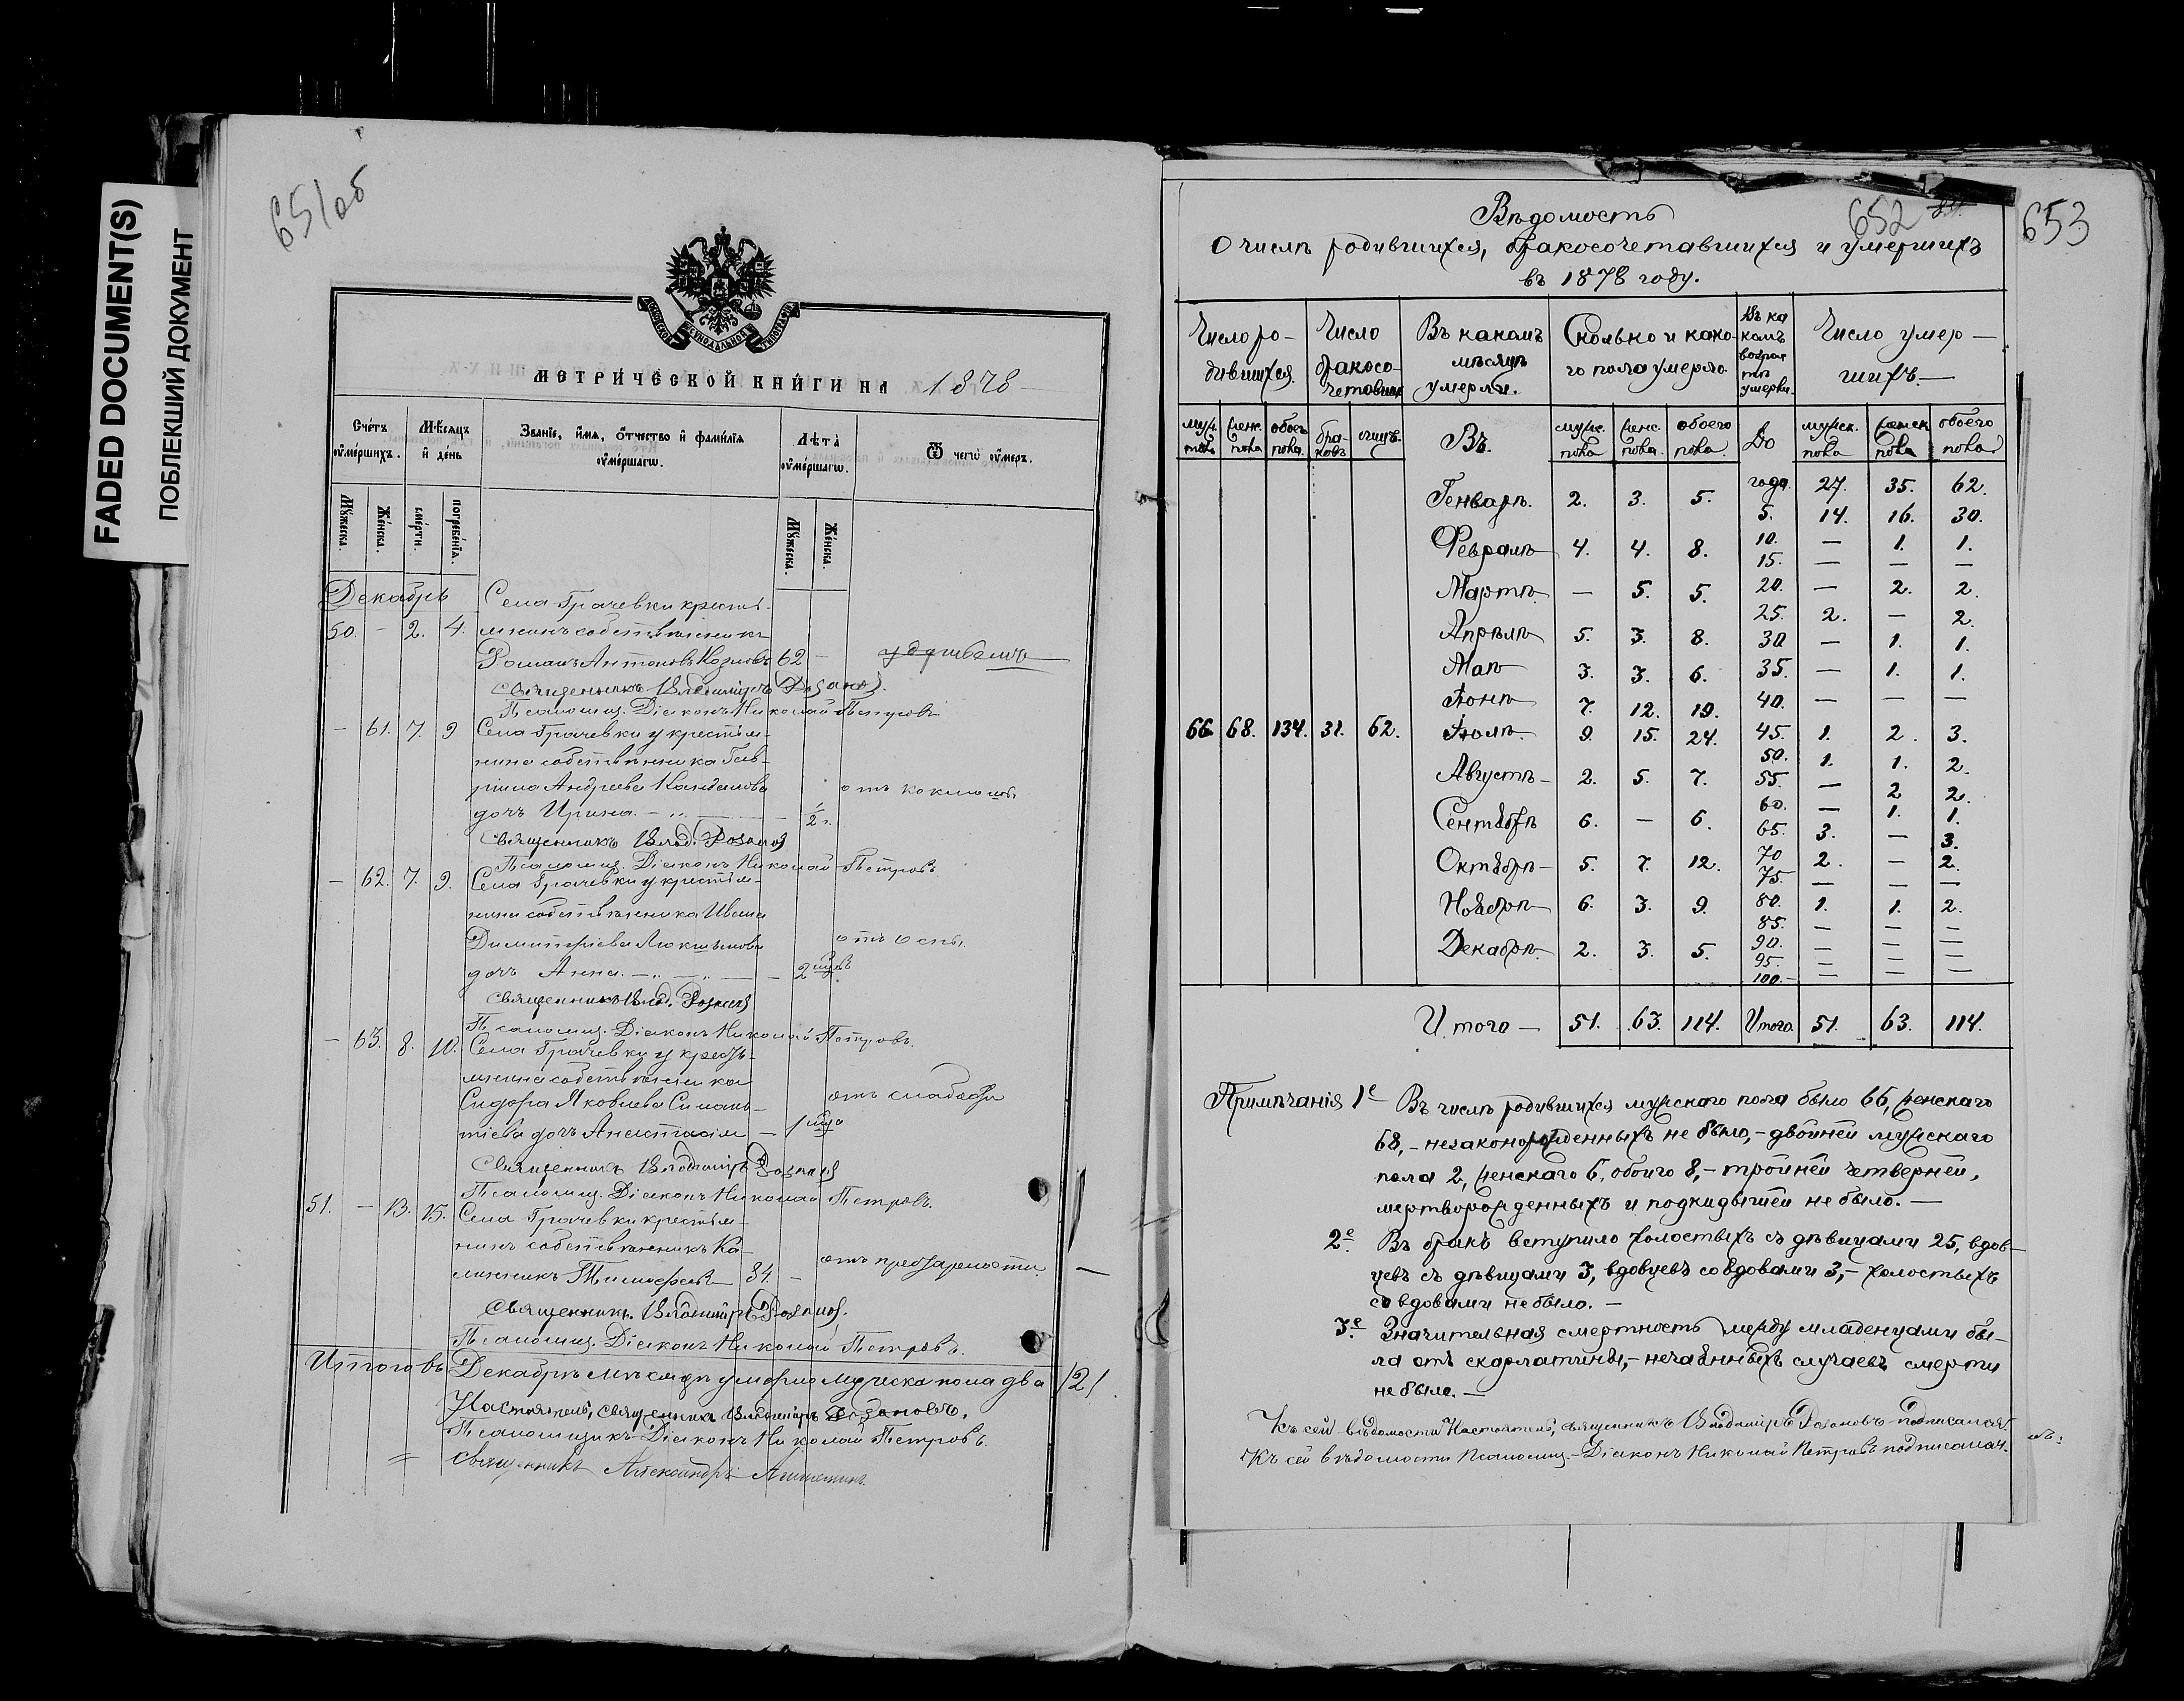 FADED DOCUMENT(S)
ПОБЛЕКШИЙ ДОКУМЕНТ
651об
МЕТРИ́ЧЕСКОЙ КНИ́ГИ НА 1878
Сче́тъ ᲂу҆ме́ршихъ.
Мѣ́сяцъ и҆ де́нь
Зва́нїе, и҆́мѧ, ѻ҆́тчество и҆ фами́лїѧ ᲂу҆ме́ршагѡ.
Лѣ́та ᲂу҆ме́ршагѡ.
Ѿ чегѡ̀ ᲂу҆́меръ.
Мꙋ́жеска.
Же́нска.
сме́рти.
погребе́нїѧ.
Мꙋ́жеска.
Же́нска.
Декабрь Села Грачевки кресть-
50. - 2. 4. янинъ собственникъ
Романъ Антоновъ Козловъ 62 - удушьемъ
Священникъ Владимiръ Розановъ.
Псаломщ. Дiаконъ Николай Петровъ
- 61. 7. 9 Села Грачевки у крестья-
нина собственника Гав-
рiила Андреева
дочь Ирина. - " - 2 г. отъ коклюша
Священникъ Влад. Розановъ
Псаломщ. Дiаконъ Николай Петровъ
- 62. 7. 9. Села Грачевки у крестья-
нина собственника Ивана
Димитрiева отъ оспы.
дочь Анна. - " - " - 2 мцвъ
Священникъ Влад. Розановъ
Псаломщ. Дiаконъ Николай Петровъ.
- 63. 8. 10. Села Грачевки у кресть-
янина собственника
Сидора Яковлева Силань-
тiева дочь Анастасiя - 1 мца отъ слабости
Священникъ Владимiръ Розановъ
Псаломщ. Дiаконъ Николай Петровъ.
51. - 13. 15. Села Грачевки крестья-
нинъ собственникъ Ка-
линникъ Тимофеевъ 84. - отъ престарелости.
Священникъ Владимiръ Розановъ.
Псаломщ. Дiаконъ Николай Петровъ.
Итого въ Декабрѣ мѣсяцѣ умерло мужеска пола два /2/.
Настоятель, священникъ Владимiръ Розановъ.
Псаломщикъ-Дiаконъ Николай Петровъ.
Священникъ Александръ
652
653
Вѣдомость
О числѣ родившихся, бракосочетавшихся и умершихъ
въ 1878 году.
Число ро-дившихся. Число бракосо-четавших Въ какомъ мѣсяцѣ умерли. Сколько и како-го пола умерло. Въ ка комъ возрас тѣ умерли. Число умер-шихъ.
муж. пола женс. пола обоего пола. бра-ковъ лицъ. Въ. мужс. пола женс. пола. обоего пола. До мужск. пола женск пола обоего пола
Генварѣ. 2. 3. 5. года. 27. 35. 62.
5. 14. 16. 30.
Февралѣ 4. 4. 8. 10. — 1. 1.
15. — — —
Мартѣ. — 5. 5. 20. — 2. 2.
25. 2. — 2.
Апрѣлѣ 5. 3. 8. 30 — 1. 1.
Маѣ 3. 3. 6. 35. — 1. 1.
Iюнѣ 7. 12. 19. 40. — — —
66. 68. 134. 31. 62. Iюлѣ. 9. 15. 24. 45. 1. 2. 3.
50. 1. 1. 2.
Августѣ 2. 5. 7. 55. — 2 2.
60. — 1. 1.
Сентябрѣ 6. — 6. 65. 3. — 3.
Октябрѣ 5. 7. 12. 70 2. — 2.
75. — — —
Ноябрѣ 6. 3. 9. 80. 1. 1. 2.
85. — — —
Декабрѣ. 2. 3. 5. 90. — — —
95. — — —
100. — — —
Итого — 51. 63. 114. Итого. 51. 63. 114.
Примѣчанiя 1е Въ числѣ родившихся мужскаго пола было 66, женскаго
68, - незаконорожденныхъ не было, - двойней мужскаго
пола 2, женскаго 6, обоего 8, - тройней четверней,
мертворожденныхъ и подкидышей не было. —
2е. Въ бракъ вступило холостыхъ съ дѣвицами 25, вдов-
цевъ съ дѣвицами 3, вдовцевъ со вдовами 3, - холостыхъ
со вдовами не было. —
3е. Значительная смертность между младенцами бы-
ла отъ скарлатины, - нечаянныхъ случаевъ смерти
не было. —
Къ сей вѣдомости Настоятель, священникъ Владимiръ Розановъ подписался.
Къ сей вѣдомости Псаломщ.-Дiаконъ Николай Петровъ подписался.